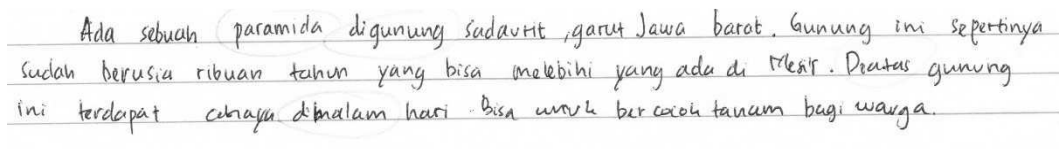 Ada sebuah paramida digunung sadaurit, garut Jawa barat. Gunung ini sepertinya
sudah berusia ribuan tahun yang bisa melebihi yang ada di Mesir. Diatas gunung
ini terdapat cahaya dimalam hari. Bisa untuk bercocok tanam bagi warga.